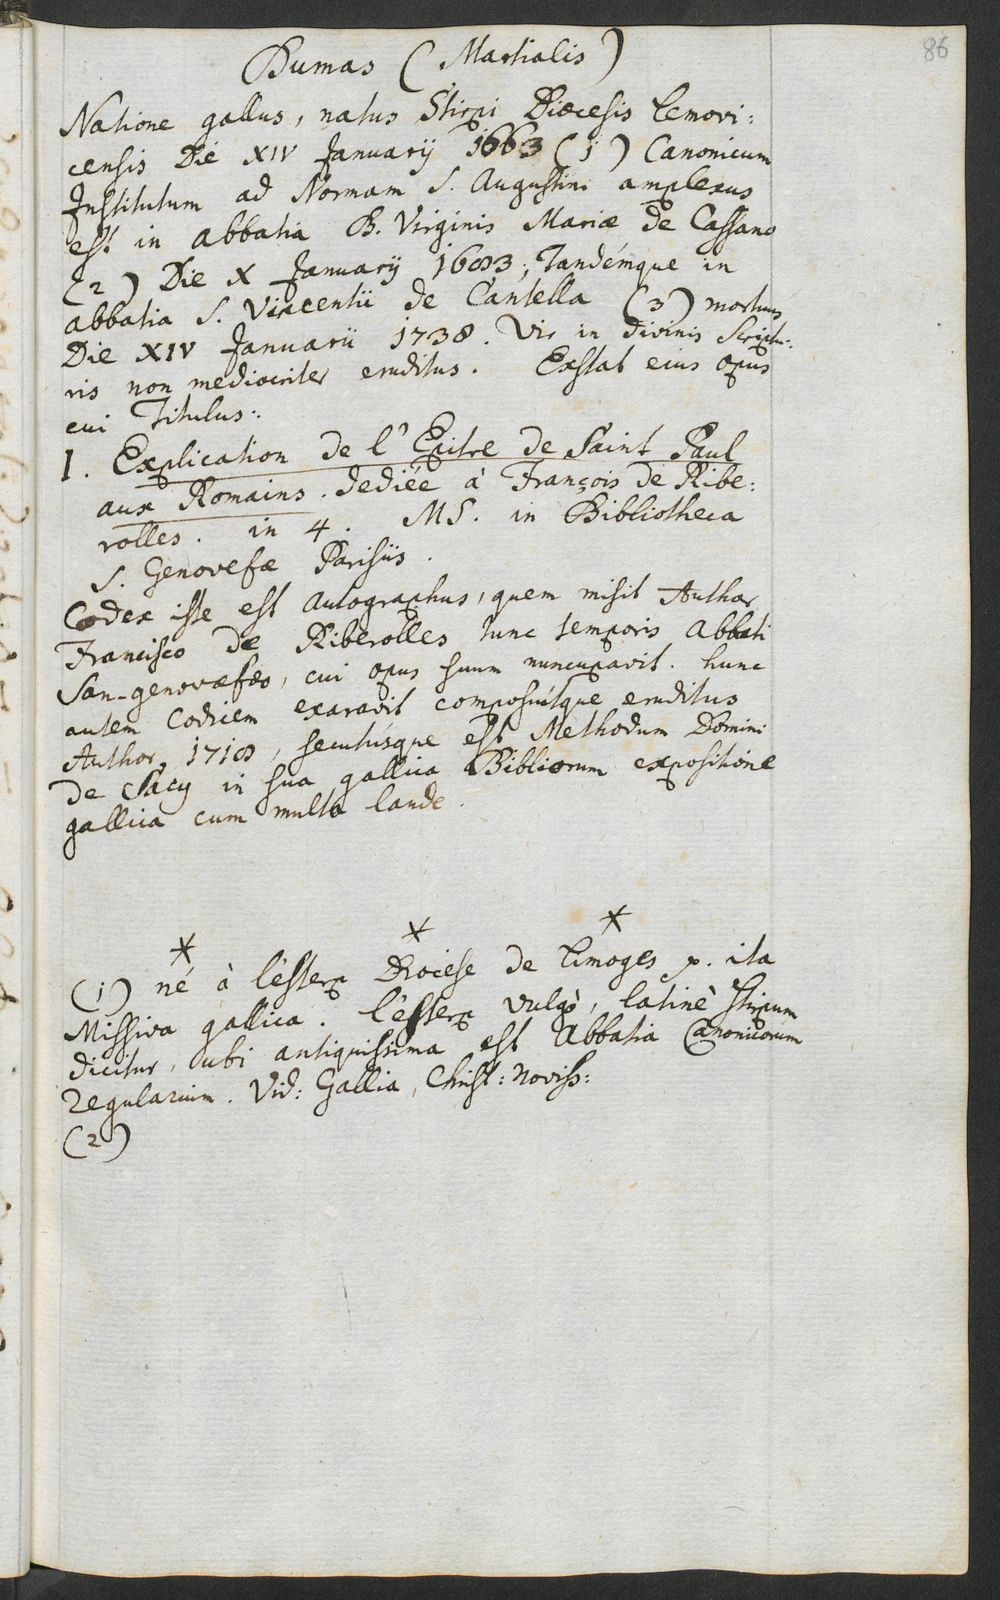 86
Dumas ( Martialis )
Natione gallus, natus Stirpi Diœcesis Lemovi:
censis Die XIV Januarij 1663 (1) Canonicum
Institutum ad Normam S. Augustini amplexus
est in abbatia B. Virginis Mariæ de Cassano
(2) Die X Januarij 1683; Tandémque in
abbatia S. Vincentii de Cantella (3) mortuus
Die XIV Januarii 1738. Vir in divinis Scriptu:
ris non mediocriter eruditus. Exstat eius opus
cui Titulus:
1. Explication de l'Epitre de Saint Paul
aux Romains. dediée à François de Ribe:
rolles. in 4. MS. in Bibliotheca
S. Genovefæ Parisiis.
Codex iste est autographus, quem misit Author
Francisco de Riberolles tunc temporis abbati
San-genovæfæo, cui opus suum nuncupavit. hunc
autem Codicem exaravit composuitque eruditus
Author, 1718, secutusque est Methodum Domini
de Sacy in sua gallica Bibliorum expositione
gallica cum multa laude.
* * *
(1) né à l'esterp Diocese de Limoges p. ita
Missiva gallica. l'esterp vulgò, latinè Stirpum
dicitur, ubi antiquissima est Abbatia Canonicorum
regularium. Vid: Gallia, Christ: noviss:
(2)